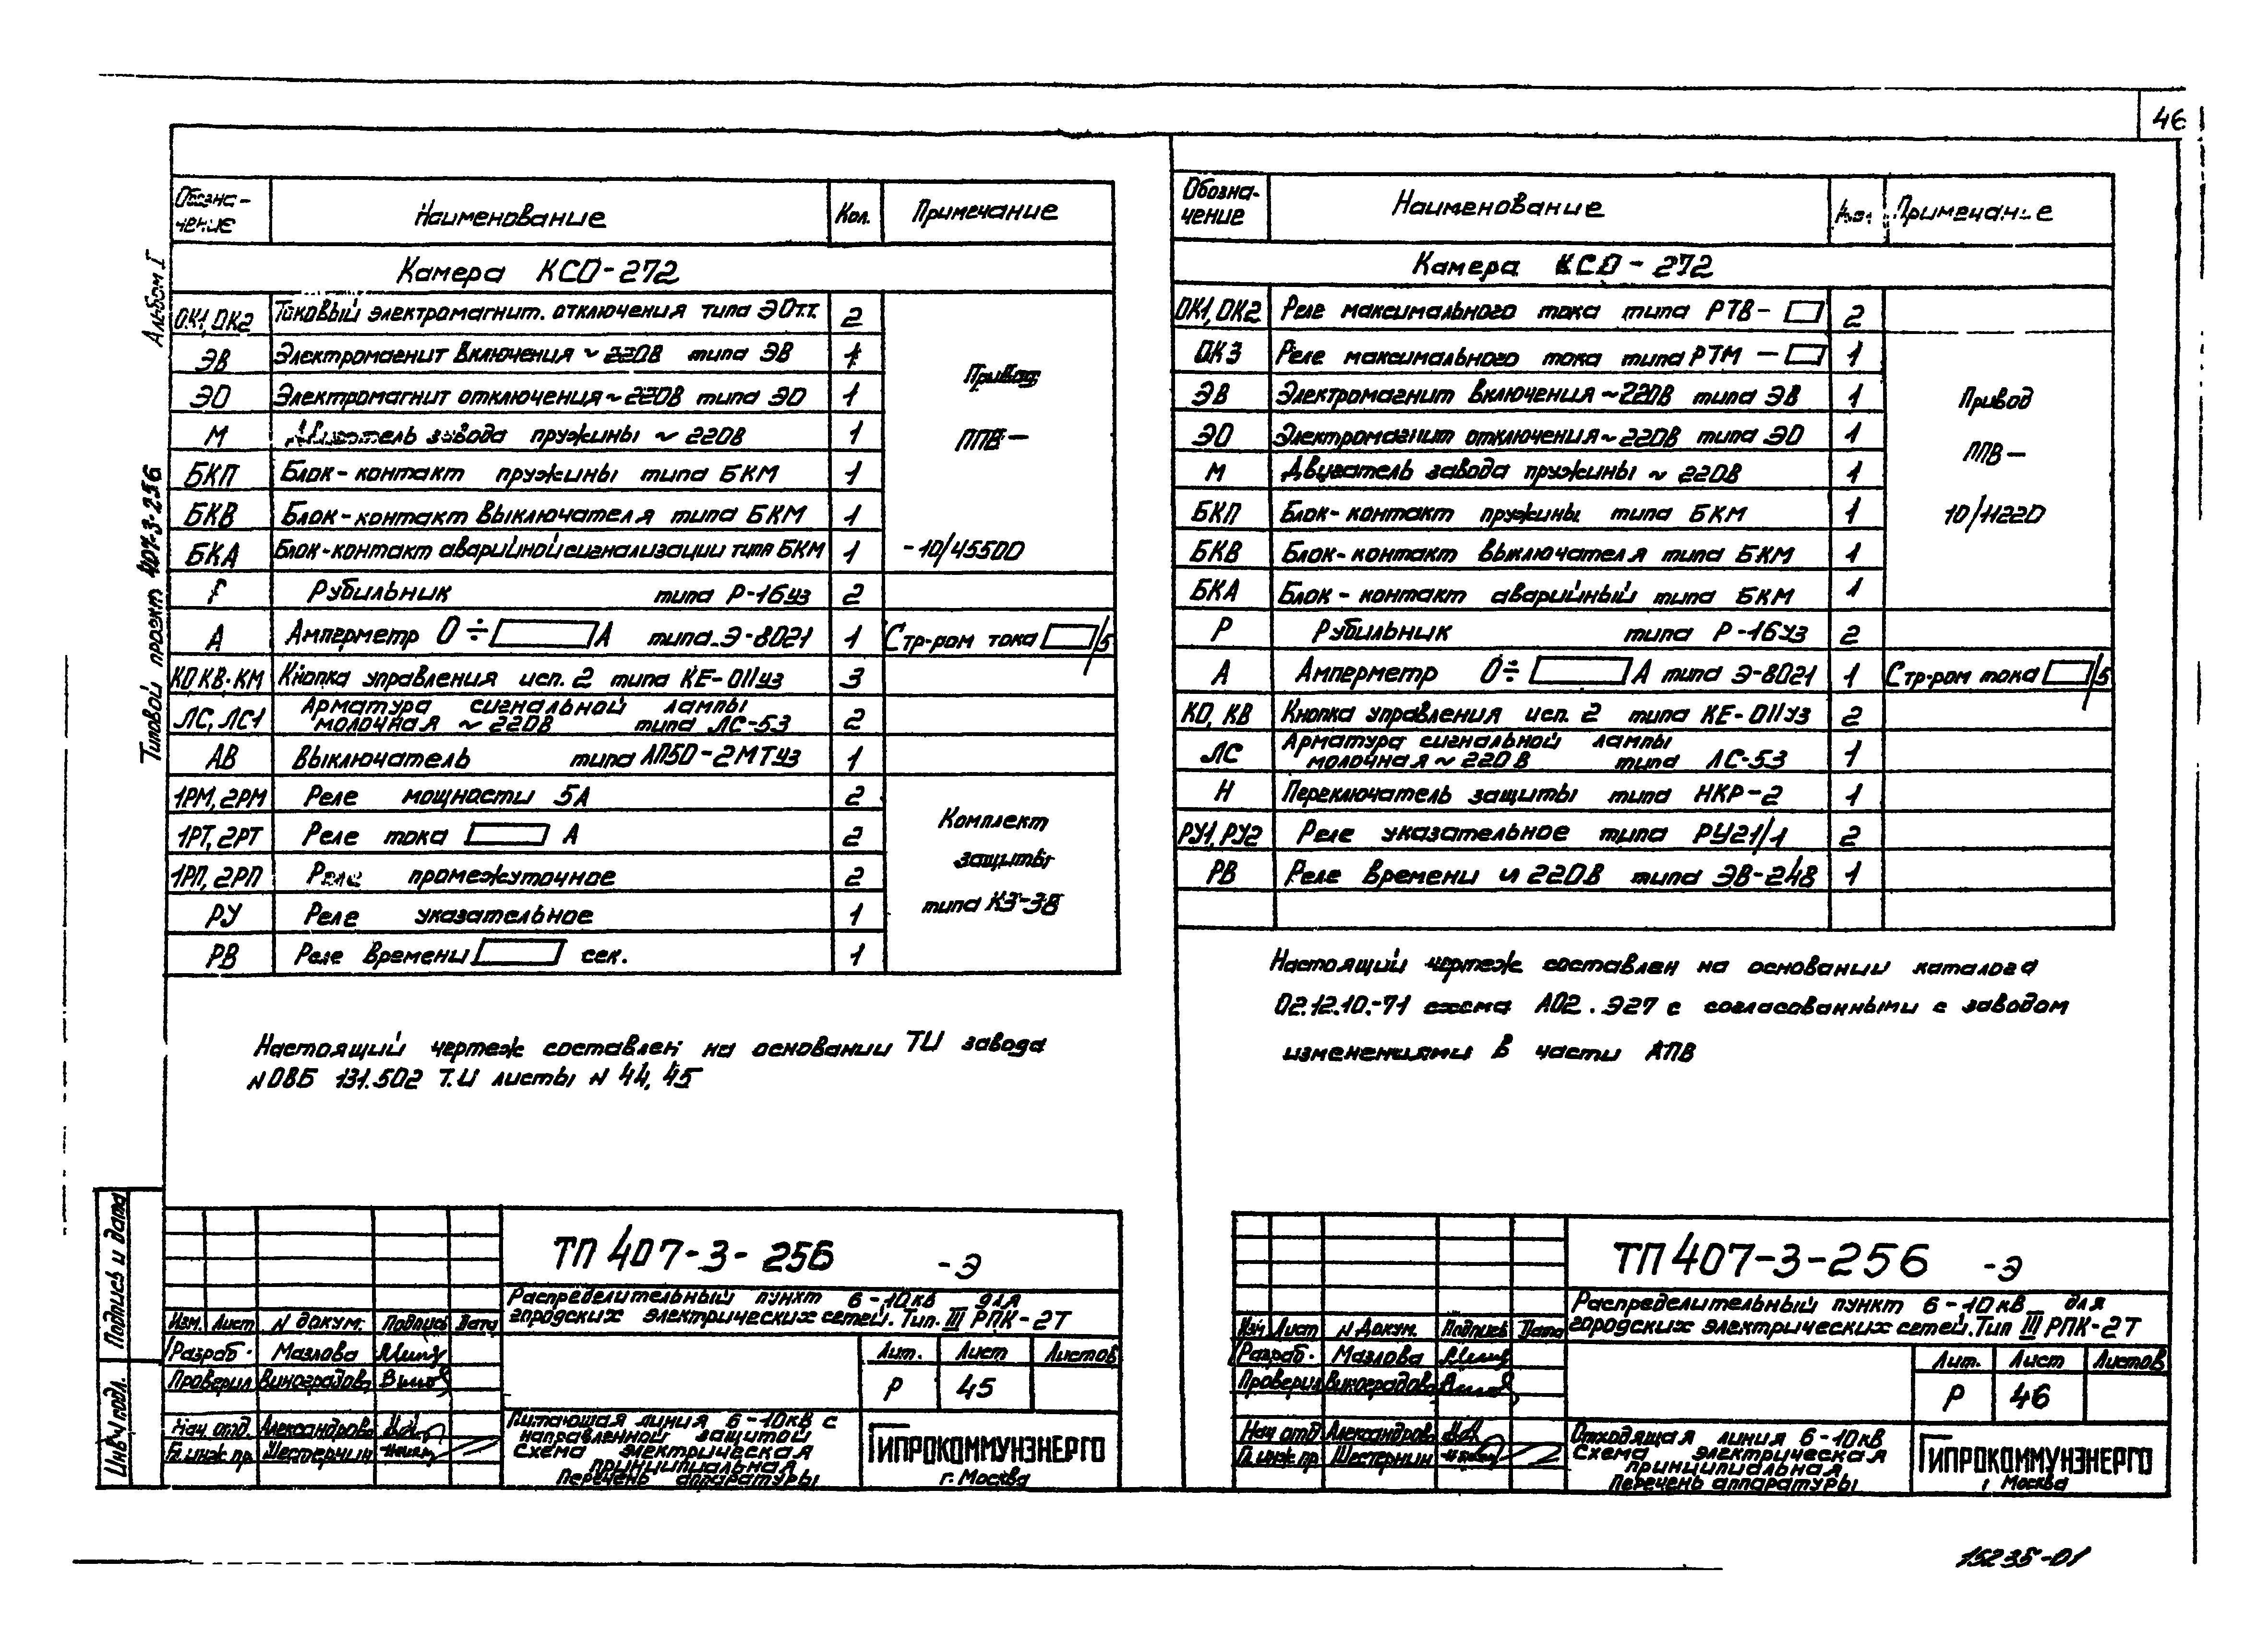 46
Альбом I
Типовой проект 407-3-256
Обозна-
чение
Наименование
Кол.
Примечание
Камера КСО-272
ОК1, ОК2 Токовый электромагнит. отключения типа ЭОтт. 2
ЭВ Электромагнит включения ~ 220В типа ЭВ 1
ЭО Электромагнит отключения ~ 220В типа ЭО 1
М Двигатель завода пружины ~ 220В 1
БКП Блок-контакт пружины типа БКМ 1
БКВ Блок-контакт выключателя типа БКМ 1
БКА Блок-контакт аварийной сигнализации типа БКМ 1
Привод
ППВ-
-10/45500
Рубильник типа Р-16уз 2
А Амперметр 0÷ А типа Э-8021 1 Стр-ром тока /5
КО, КВ, КМ Кнопка управления исп. 2 типа КЕ-011уз 3
ЛС, ЛС1 Арматура сигнальной лампы
молочная ~ 220В типа ЛС-53 2
АВ Выключатель типа АП50-2МТуз 1
1РМ, 2РМ Реле мощности 5А 2
1РТ, 2РТ Реле тока А 2
1РП, 2РП Реле промежуточное 2
РУ Реле указательное 1
РВ Реле времени сек. 1
Комплект
защиты
типа КЗ-38
Настоящий чертеж составлен на основании ТИ завода
N ОВБ 131.502 Т.И листы N 44, 45
Подпись и дата
Инв.N подл.
ТП 407-3-256 -Э
Распределительный пункт 6-10кв для
городских электрических сетей. Тип. III РПК-2Т
Изм. Лист N докум. Подпись Дата
Разраб. Мазлова
Проверил Виноградова
Нач. отд. Александрова
Гл. инж. пр. Шестернин
Лит. Лист Листов
Р 45
Питающая линия 6-10кв с
направленной защитой
Схема электрическая
принципиальная
Перечень аппаратуры
ГИПРОКОММУНЭНЕРГО
г. Москва
Обозна-
чение
Наименование
Кол.
Примечание
Камера КСО-272
ОК1, ОК2 Реле максимального тока типа РТВ- 2
ОК3 Реле максимального тока типа РТМ- 1
ЭВ Электромагнит включения ~220В типа ЭВ 1
ЭО Электромагнит отключения ~220В типа ЭО 1
М Двигатель завода пружины ~ 220В 1
БКП Блок-контакт пружины типа БКМ 1
БКВ Блок-контакт выключателя типа БКМ 1
БКА Блок-контакт аварийный типа БКМ 1
Привод
ППВ-
10/11220
Р Рубильник типа Р-16уз 2
А Амперметр 0÷ А типа Э-8021 1 Стр-ром тока /5
КО, КВ Кнопка управления исп. 2 типа КЕ-011уз 2
ЛС Арматура сигнальной лампы
молочная ~ 220В типа ЛС-53 1
Н Переключатель защиты типа НКР-2 1
РУ1, РУ2 Реле указательное типа РУ21/1 2
РВ Реле времени 220В типа ЭВ-248 1
Настоящий чертеж составлен на основании каталога
02.12.10.-71 схема А02.Э27 с согласованными с заводом
изменениями в части АПВ
ТП 407-3-256 -Э
Распределительный пункт 6-10кв для
городских электрических сетей. Тип III РПК-2Т
Изм Лист N Докум. Подпись Дата
Разраб. Мазлова
Проверил Виноградова
Нач отд Александрова
Гл. инж пр. Шестернин
Лит. Лист Листов
Р 46
Отходящая линия 6-10кв
Схема электрическая
принципиальная
Перечень аппаратуры
ГИПРОКОММУНЭНЕРГО
г Москва
15235-01